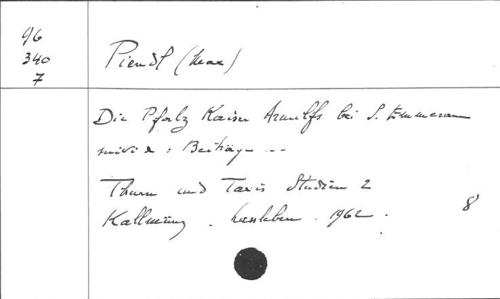 96
340
7
Piendl (Max)
Die Pfalz Kaiser Arnulfs bei S. Emmeram
suivi de : Beiträge ...
Thurn und Taxis Studien 2
Kallmünz . Lassleben . 1962 .
8